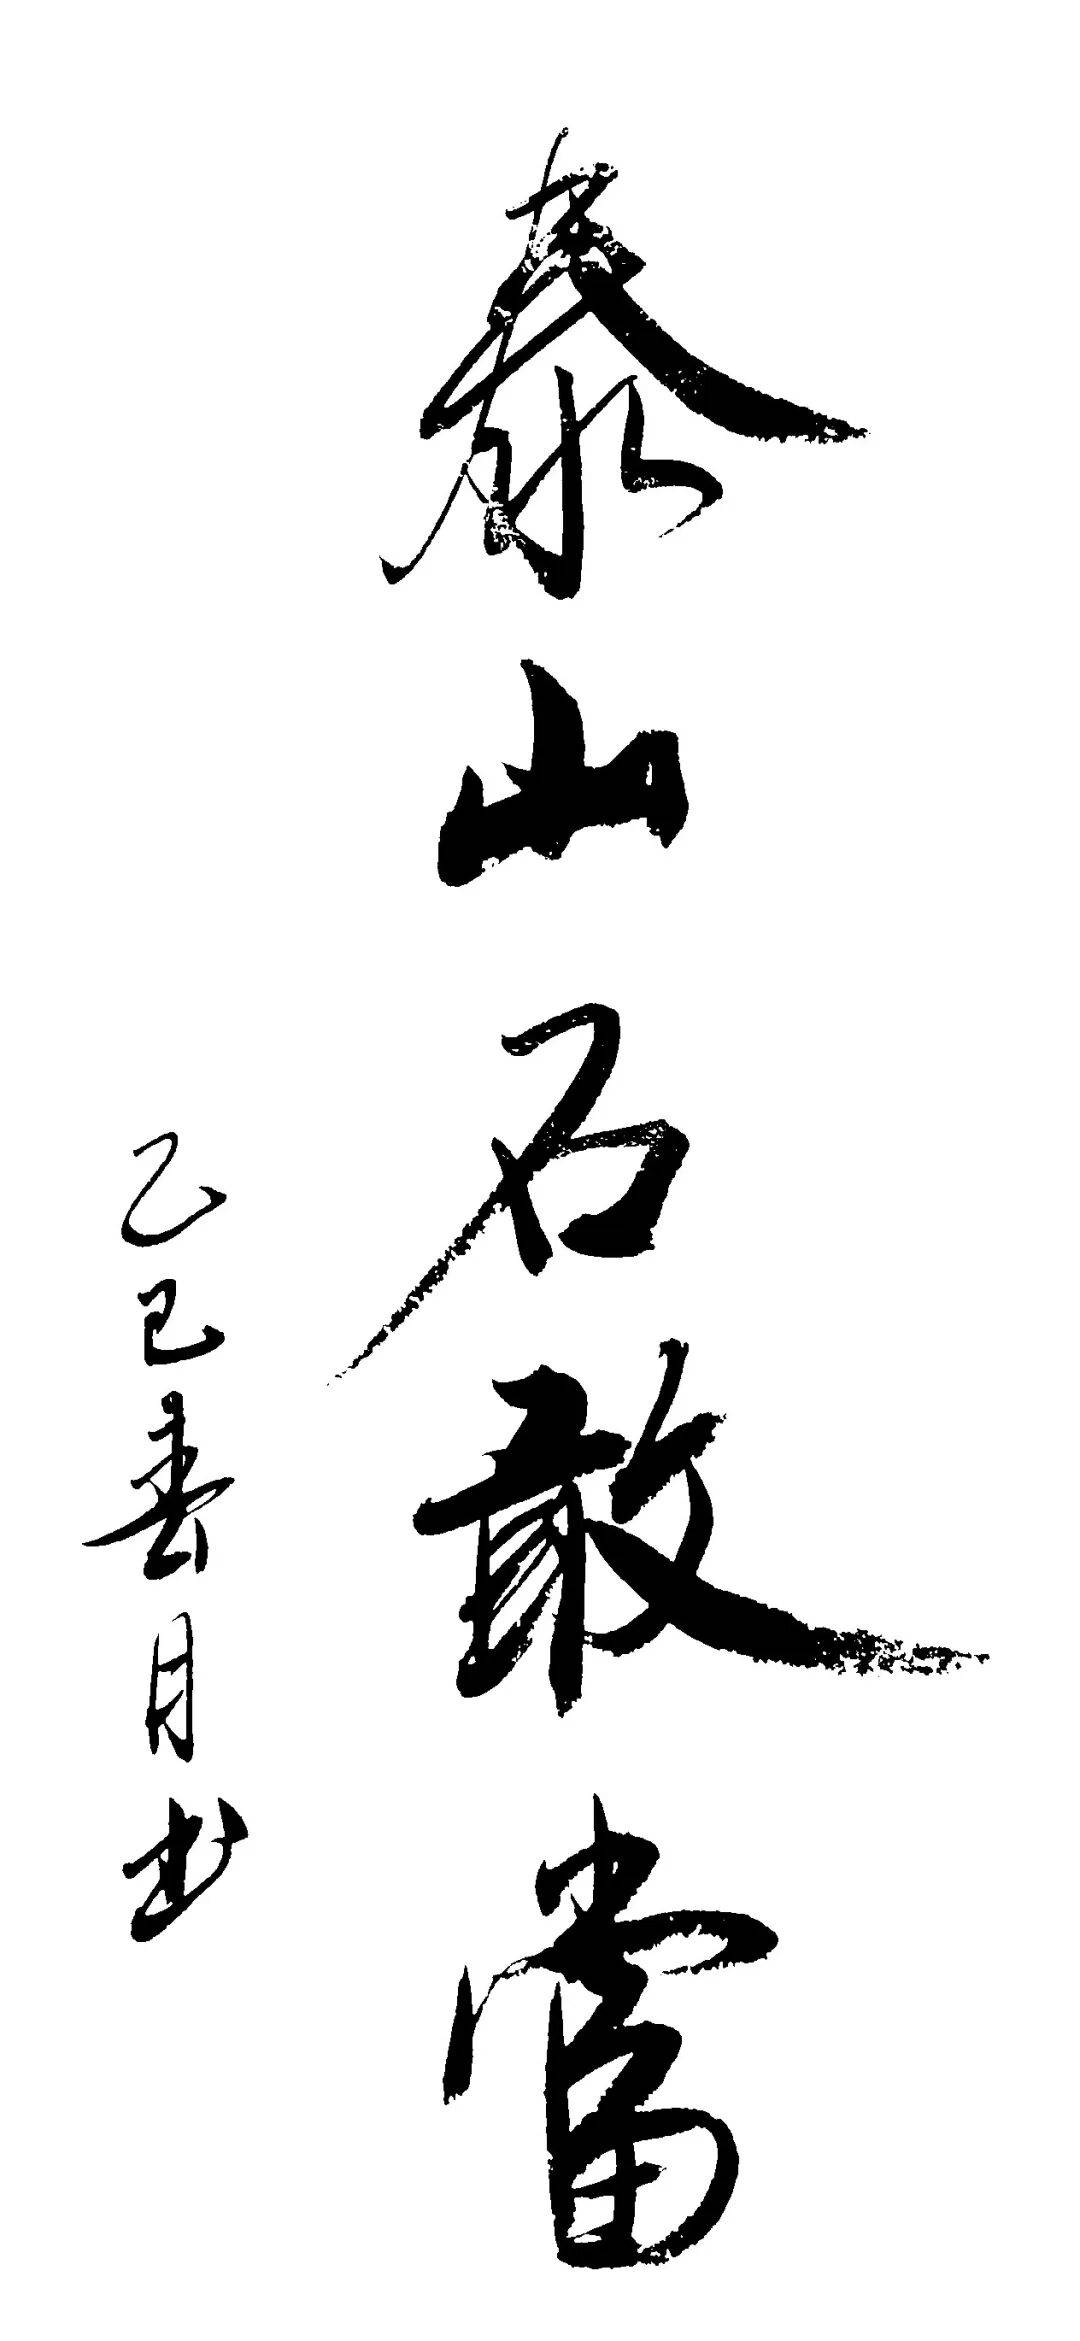 泰山石敢當
乙巳春月书